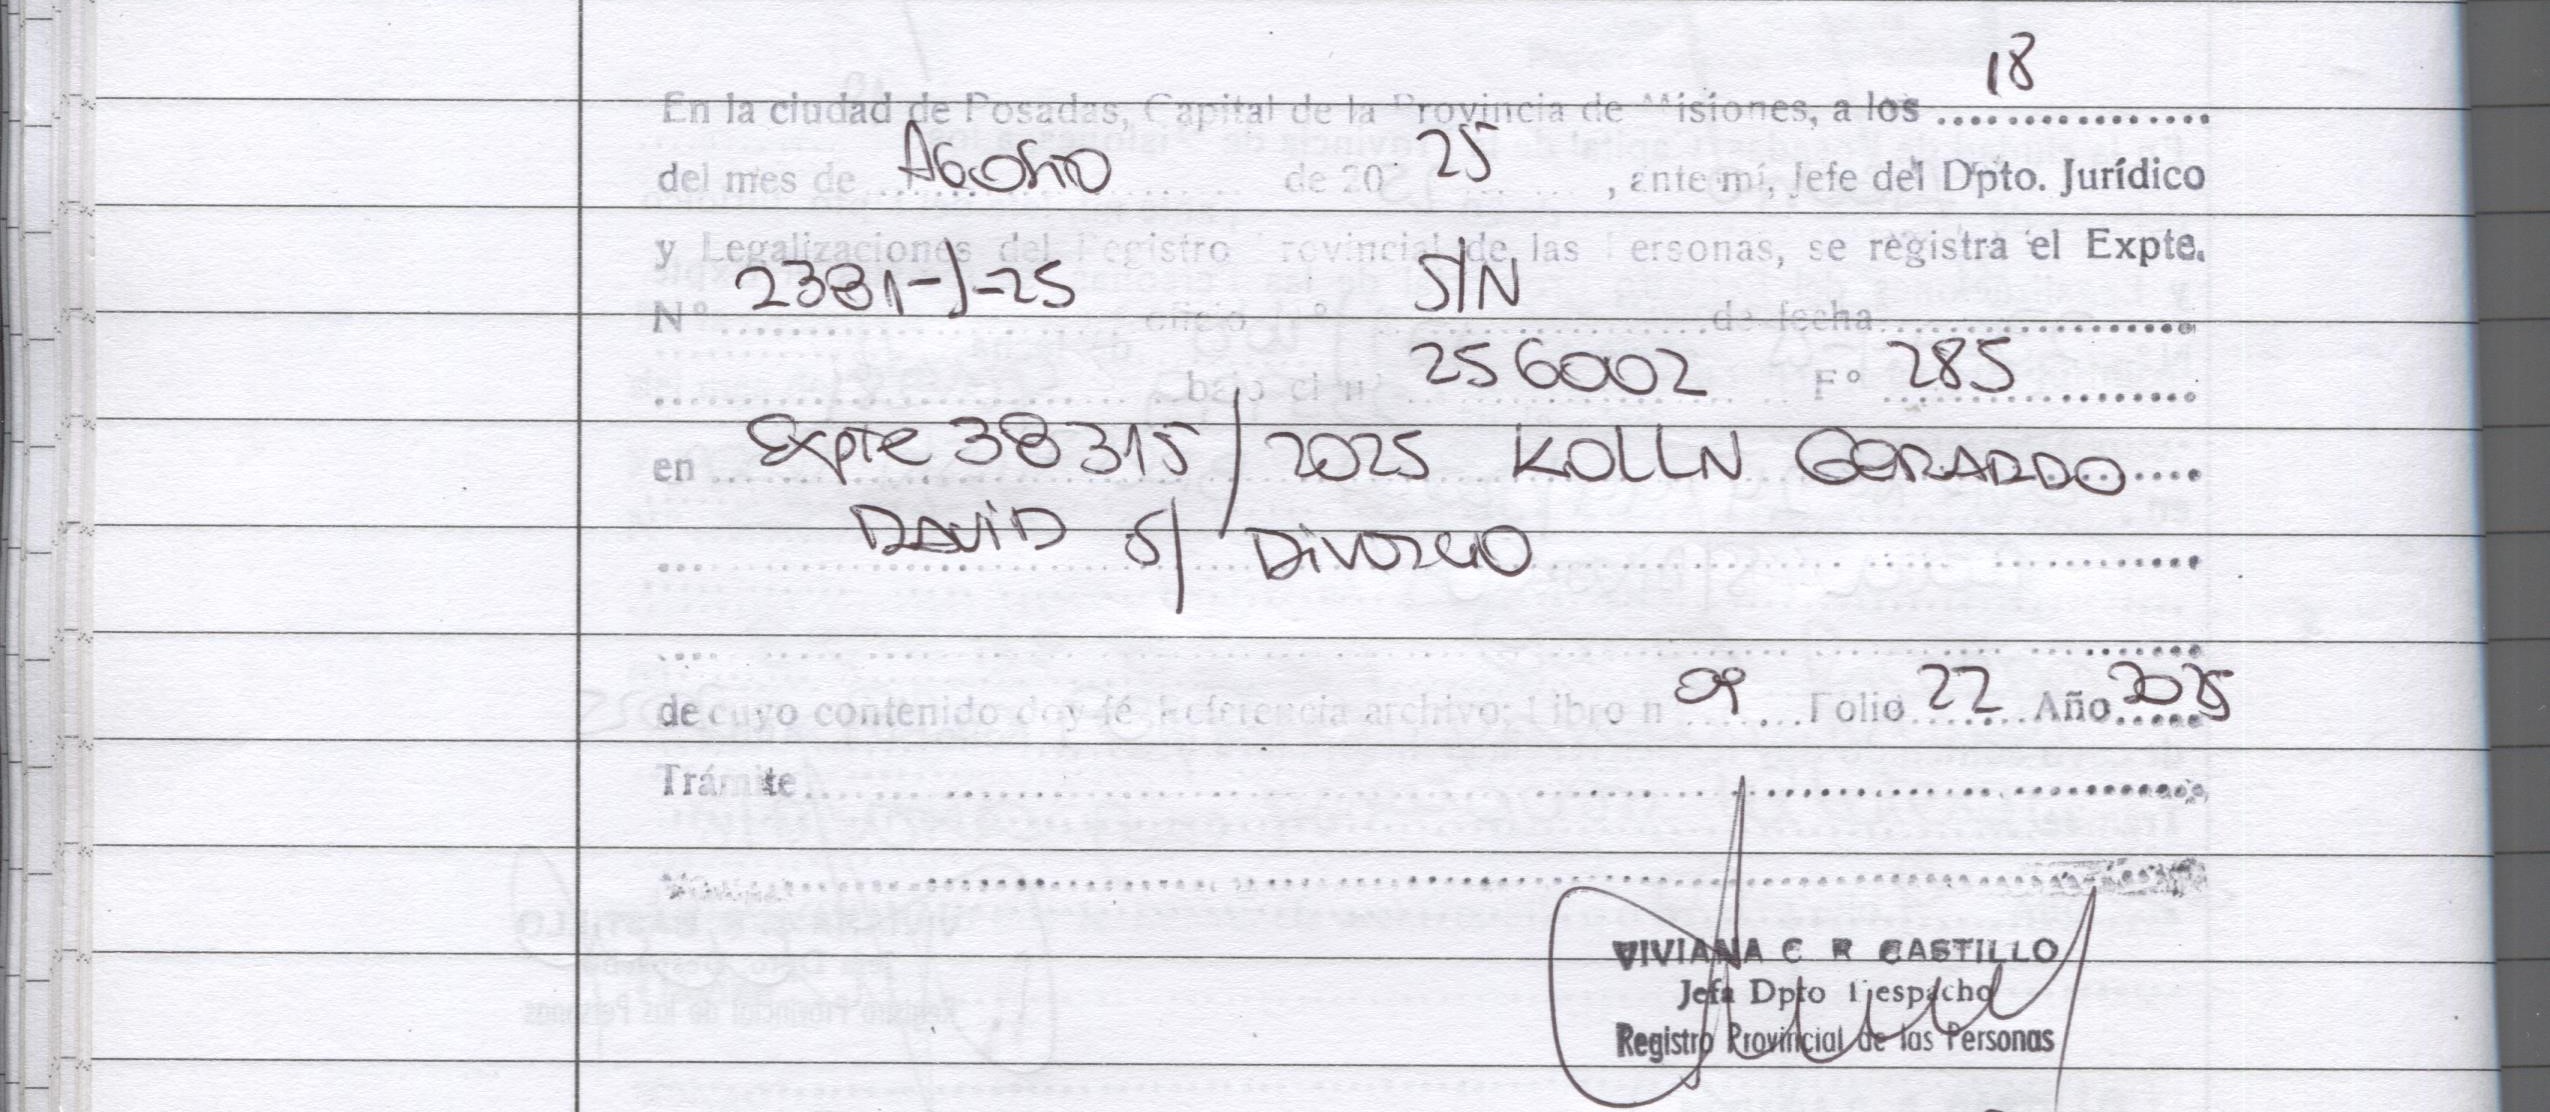 18
En la ciudad de Posadas, Capital de la Provincia de Misiones, a los
del mes de Agosto de 20 25, ante mí, Jefe del Dpto. Jurídico
y Legalizaciones del Registro Provincial de las Personas, se registra el Expte.
Nº 2381-J-25 oficio nº S/N de fecha
bajo el nº 256002 Fº 285
en Expte 38315/2025 KOLLN GERARDO
DAVID S/ DIVORCIO
de cuyo contenido doy fé Referencia archivo: Libro n 09 Folio 22 Año 2025
Trámite
VIVIANA C R CASTILLO
Jefa Dpto Despacho
Registro Provincial de las Personas